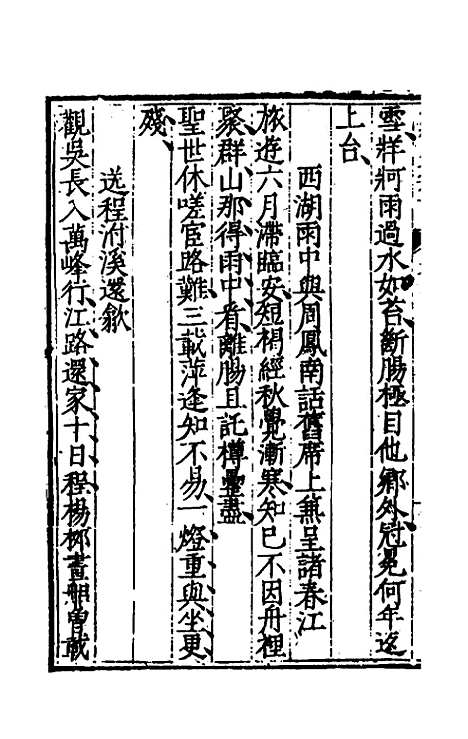 雪牂牁雨過水如苔斷腸極目他鄉外冠冕何年返
上台
西湖雨中與周鳳南話舊席上兼呈諸春江
旅遊六月滯臨安短榻經秋覺漸寒知已不因舟裡
聚群山那得雨中看離腸且託樽罍盡
聖世休嗟宦路難三載萍逢知不易一燈重與坐更
殘
送程泭溪還歙
觀吳長入萬峰行江路還家十日程楊柳畫船曾載